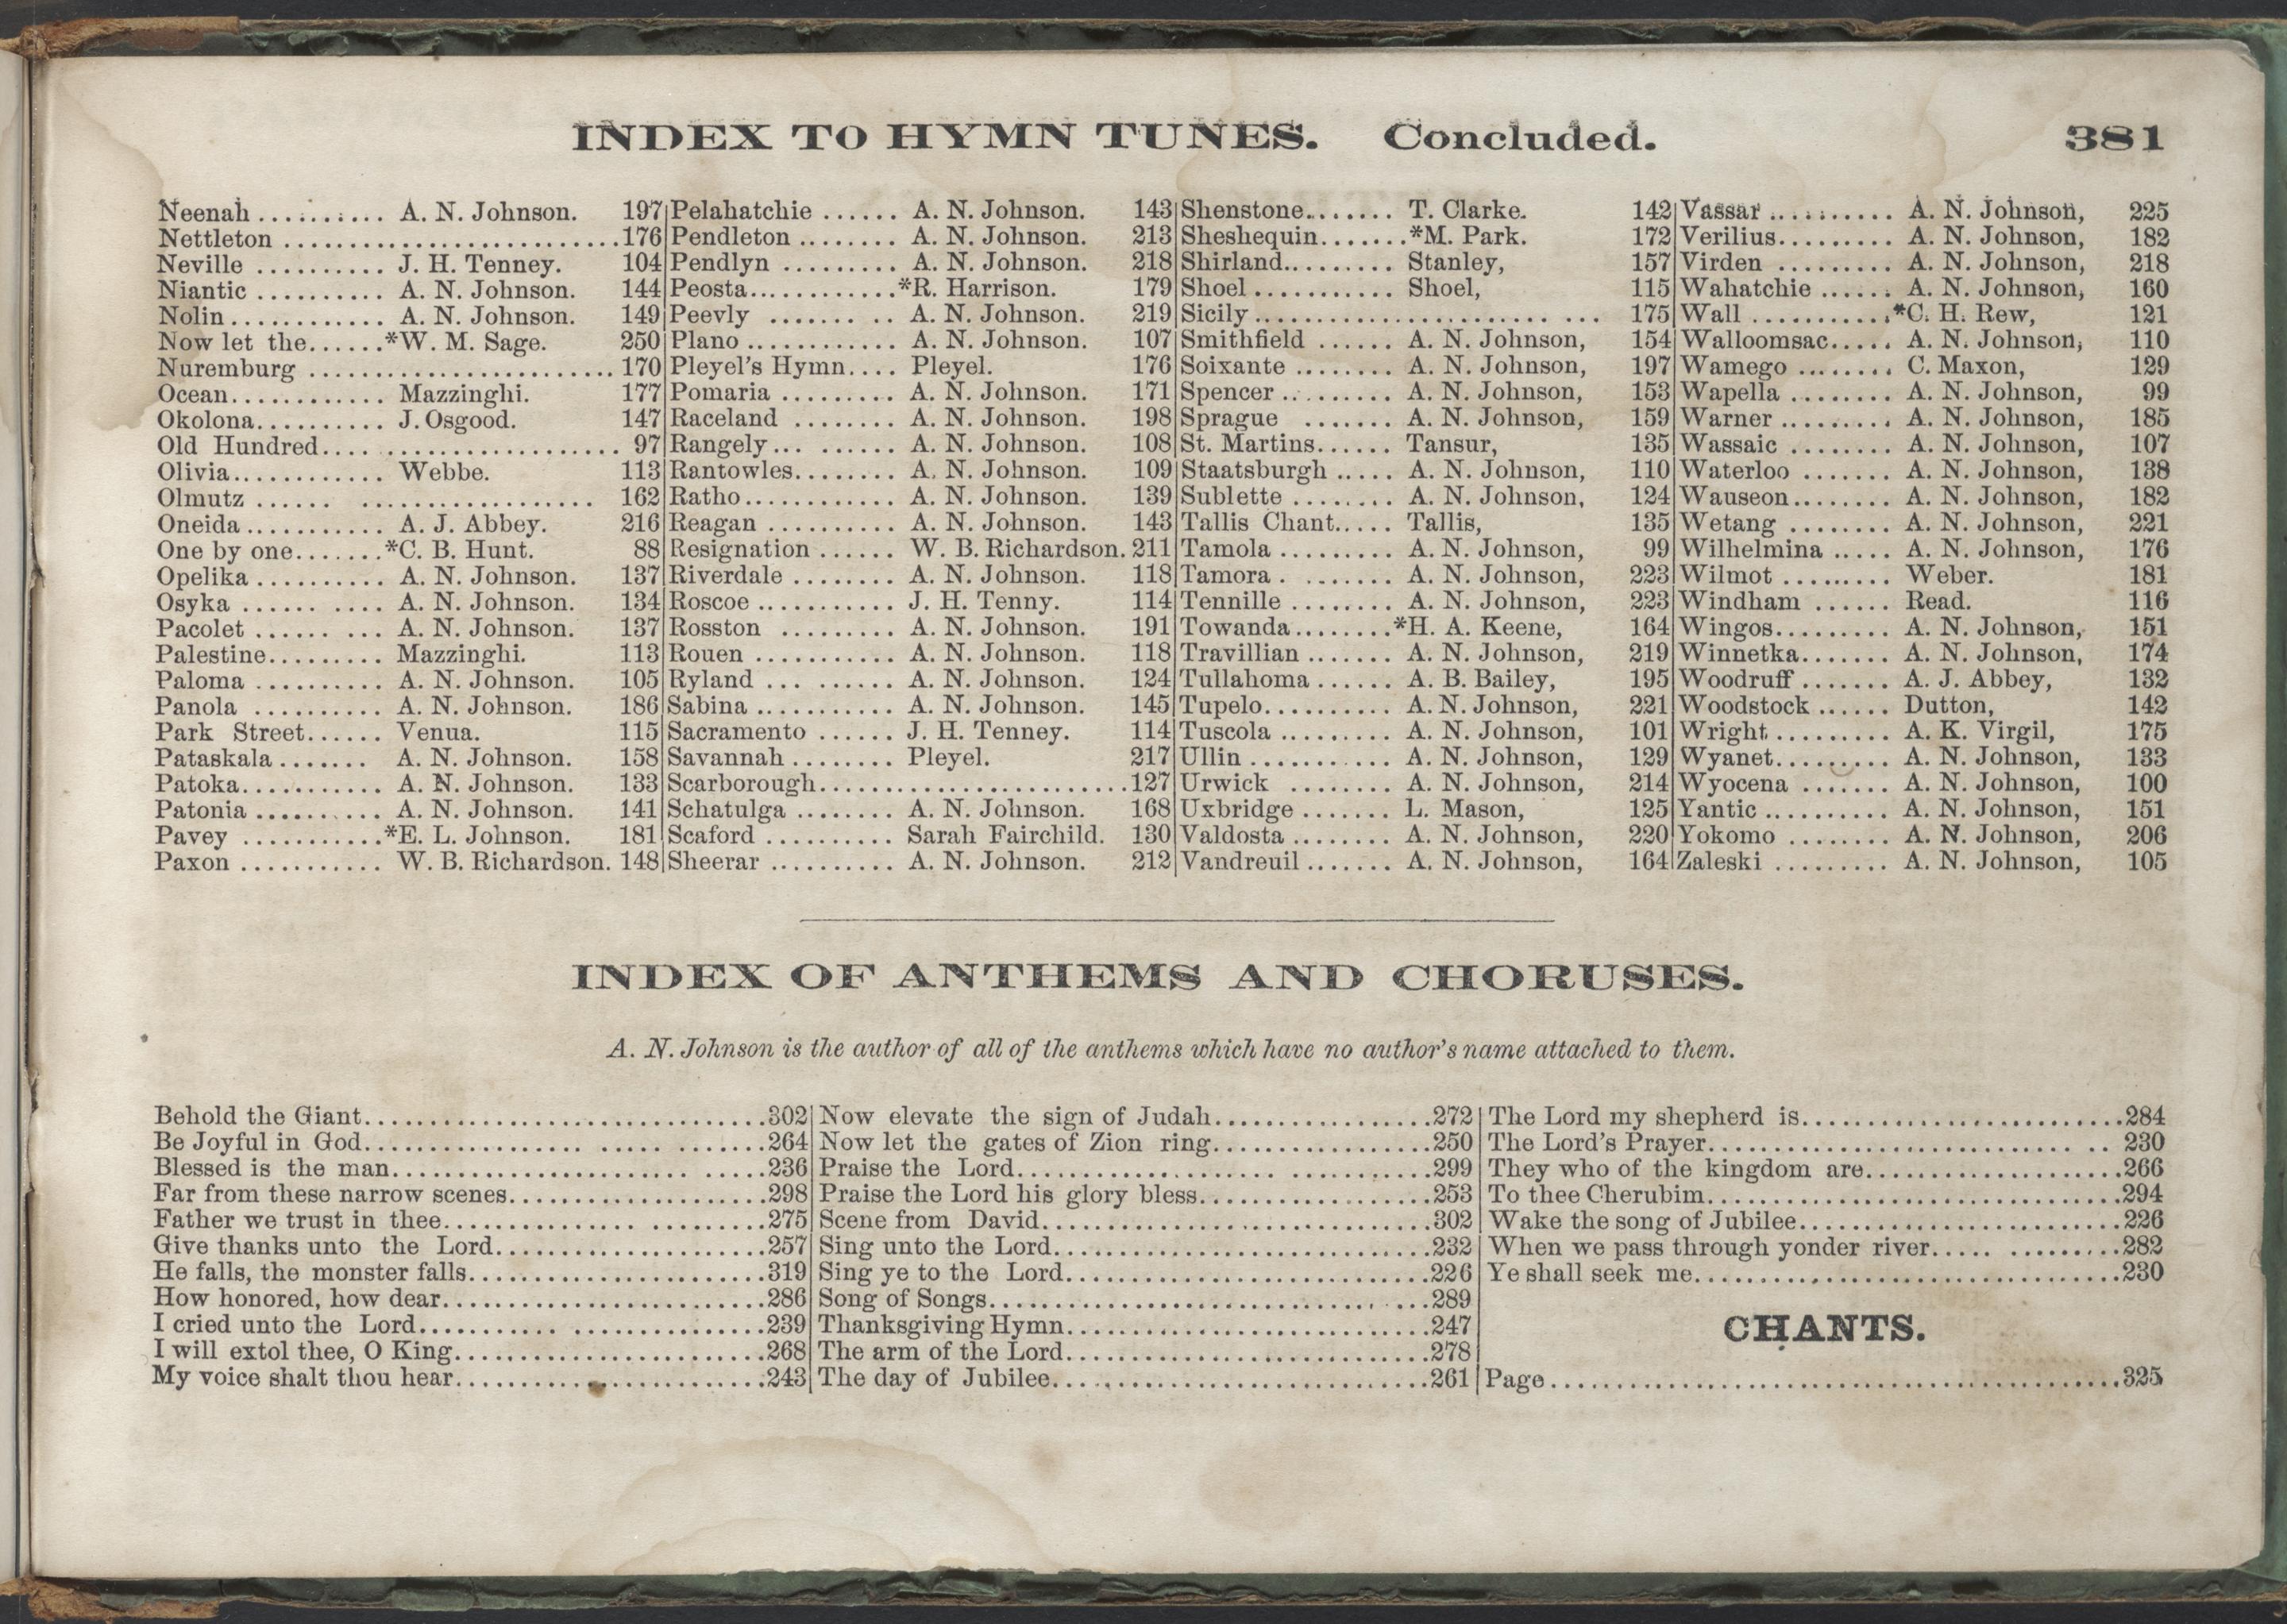 INDEX TO HYMN TUNES. Concluded. 381
Neenah .......... A. N. Johnson. 197
Nettleton .......................... 176
Neville .......... J. H. Tenney. 104
Niantic .......... A. N. Johnson. 144
Nolin ............ A. N. Johnson. 149
Now let the...... *W. M. Sage. 250
Nuremburg ........................ 170
Ocean............ Mazzinghi. 177
Okolona.......... J. Osgood. 147
Old Hundred....................... 97
Olivia............ Webbe. 113
Olmutz ...... .................. 162
Oneida ........... A. J. Abbey. 216
One by one....... *C. B. Hunt. 88
Opelika .......... A. N. Johnson. 137
Osyka ...... .... A. N. Johnson. 134
Pacolet ...... ... A. N. Johnson. 137
Palestine......... Mazzinghi. 113
Paloma .......... A. N. Johnson. 105
Panola .......... A. N. Johnson. 186
Park Street...... Venua. 115
Pataskala ....... A. N. Johnson. 158
Patoka........... A. N. Johnson. 133
Patonia .......... A. N. Johnson. 141
Pavey ........... *E. L. Johnson. 181
Paxon ........... W. B. Richardson. 148
Pelahatchie ...... A. N. Johnson. 143
Pendleton ........ A. N. Johnson. 213
Pendlyn ......... A. N. Johnson. 218
Peosta............ *R. Harrison. 179
Peevly ....... .. A. N. Johnson. 219
Plano ............ A. N. Johnson. 107
Pleyel's Hymn.... Pleyel. 176
Pomaria ......... A. N. Johnson. 171
Raceland ........ A. N. Johnson. 198
Rangely... ...... A. N. Johnson. 108
Rantowles........ A. N. Johnson. 109
Ratho............ A. N. Johnson. 139
Reagan .......... A. N. Johnson. 143
Resignation ...... W. B. Richardson. 211
Riverdale ........ A. N. Johnson. 118
Roscoe ........... J. H. Tenny. 114
Rosston ......... A. N. Johnson. 191
Rouen ........... A. N. Johnson. 118
Ryland ... ...... A. N. Johnson. 124
Sabina ........... A. N. Johnson. 145
Sacramento ...... J. H. Tenney. 114
Savannah ........ Pleyel. 217
Scarborough........................ 127
Schatulga ........ A. N. Johnson. 168
Scaford .......... Sarah Fairchild. 130
Sheerar .......... A. N. Johnson. 212
Shenstone........ T. Clarke. 142
Sheshequin....... *M. Park. 172
Shirland.......... Stanley, 157
Shoel ........... Shoel, 115
Sicily ........................... 175
Smithfield ...... A. N. Johnson, 154
Soixante ........ A. N. Johnson, 197
Spencer ......... A. N. Johnson, 153
Sprague ....... A. N. Johnson, 159
St. Martins...... Tansur, 135
Staatsburgh ..... A. N. Johnson, 110
Sublette ........ A. N. Johnson, 124
Tallis Chant..... Tallis, 135
Tamola ......... A. N. Johnson, 99
Tamora . ....... A. N. Johnson, 223
Tennille ........ A. N. Johnson, 223
Towanda........ *H. A. Keene, 164
Travillian ....... A. N. Johnson, 219
Tullahoma ...... A. B. Bailey, 195
Tupelo.......... A. N. Johnson, 221
Tuscola ......... A. N. Johnson, 101
Ullin ........... A. N. Johnson, 129
Urwick ........ A. N. Johnson, 214
Uxbridge ....... L. Mason, 125
Valdosta ........ A. N. Johnson, 220
Vandreuil ....... A. N. Johnson, 164
Vassar .......... A. N. Johnson, 225
Verilius......... A. N. Johnson, 182
Virden ......... A. N. Johnson, 218
Wahatchie ...... A. N. Johnson, 160
Wall ........... *C. H. Rew, 121
Walloomsac..... A. N. Johnson, 110
Wamego ........ C. Maxon, 129
Wapella ........ A. N. Johnson, 99
Warner ......... A. N. Johnson, 185
Wassaic ........ A. N. Johnson, 107
Waterloo ....... A. N. Johnson, 138
Wauseon........ A. N. Johnson, 182
Wetang ........ A. N. Johnson, 221
Wilhelmina ..... A. N. Johnson, 176
Wilmot ......... Weber. 181
Windham ...... Read. 116
Wingos......... A. N. Johnson, 151
Winnetka....... A. N. Johnson, 174
Woodruff ....... A. J. Abbey, 132
Woodstock ...... Dutton, 142
Wright ......... A. K. Virgil, 175
Wyanet......... A. N. Johnson, 133
Wyocena ....... A. N. Johnson, 100
Yantic .......... A. N. Johnson, 151
Yokomo ........ A. N. Johnson, 206
Zaleski ......... A. N. Johnson, 105
INDEX OF ANTHEMS AND CHORUSES.
A. N. Johnson is the author of all of the anthems which have no author's name attached to them.
Behold the Giant..............................302
Be Joyful in God..............................264
Blessed is the man............................236
Far from these narrow scenes....................298
Father we trust in thee.........................275
Give thanks unto the Lord.....................257
He falls, the monster falls.......................319
How honored, how dear.........................286
I cried unto the Lord...........................239
I will extol thee, O King........................268
My voice shalt thou hear........................243
Now elevate the sign of Judah.................272
Now let the gates of Zion ring.................250
Praise the Lord................................299
Praise the Lord his glory bless..................253
Scene from David..............................302
Sing unto the Lord.............................232
Sing ye to the Lord............................226
Song of Songs..................................289
Thanksgiving Hymn............................247
The arm of the Lord............................278
The day of Jubilee..............................261
The Lord my shepherd is.........................284
The Lord's Prayer.............................. 230
They who of the kingdom are....................266
To thee Cherubim................................294
Wake the song of Jubilee.........................226
When we pass through yonder river..... .........282
Ye shall seek me.................................230
CHANTS.
Page............................................325